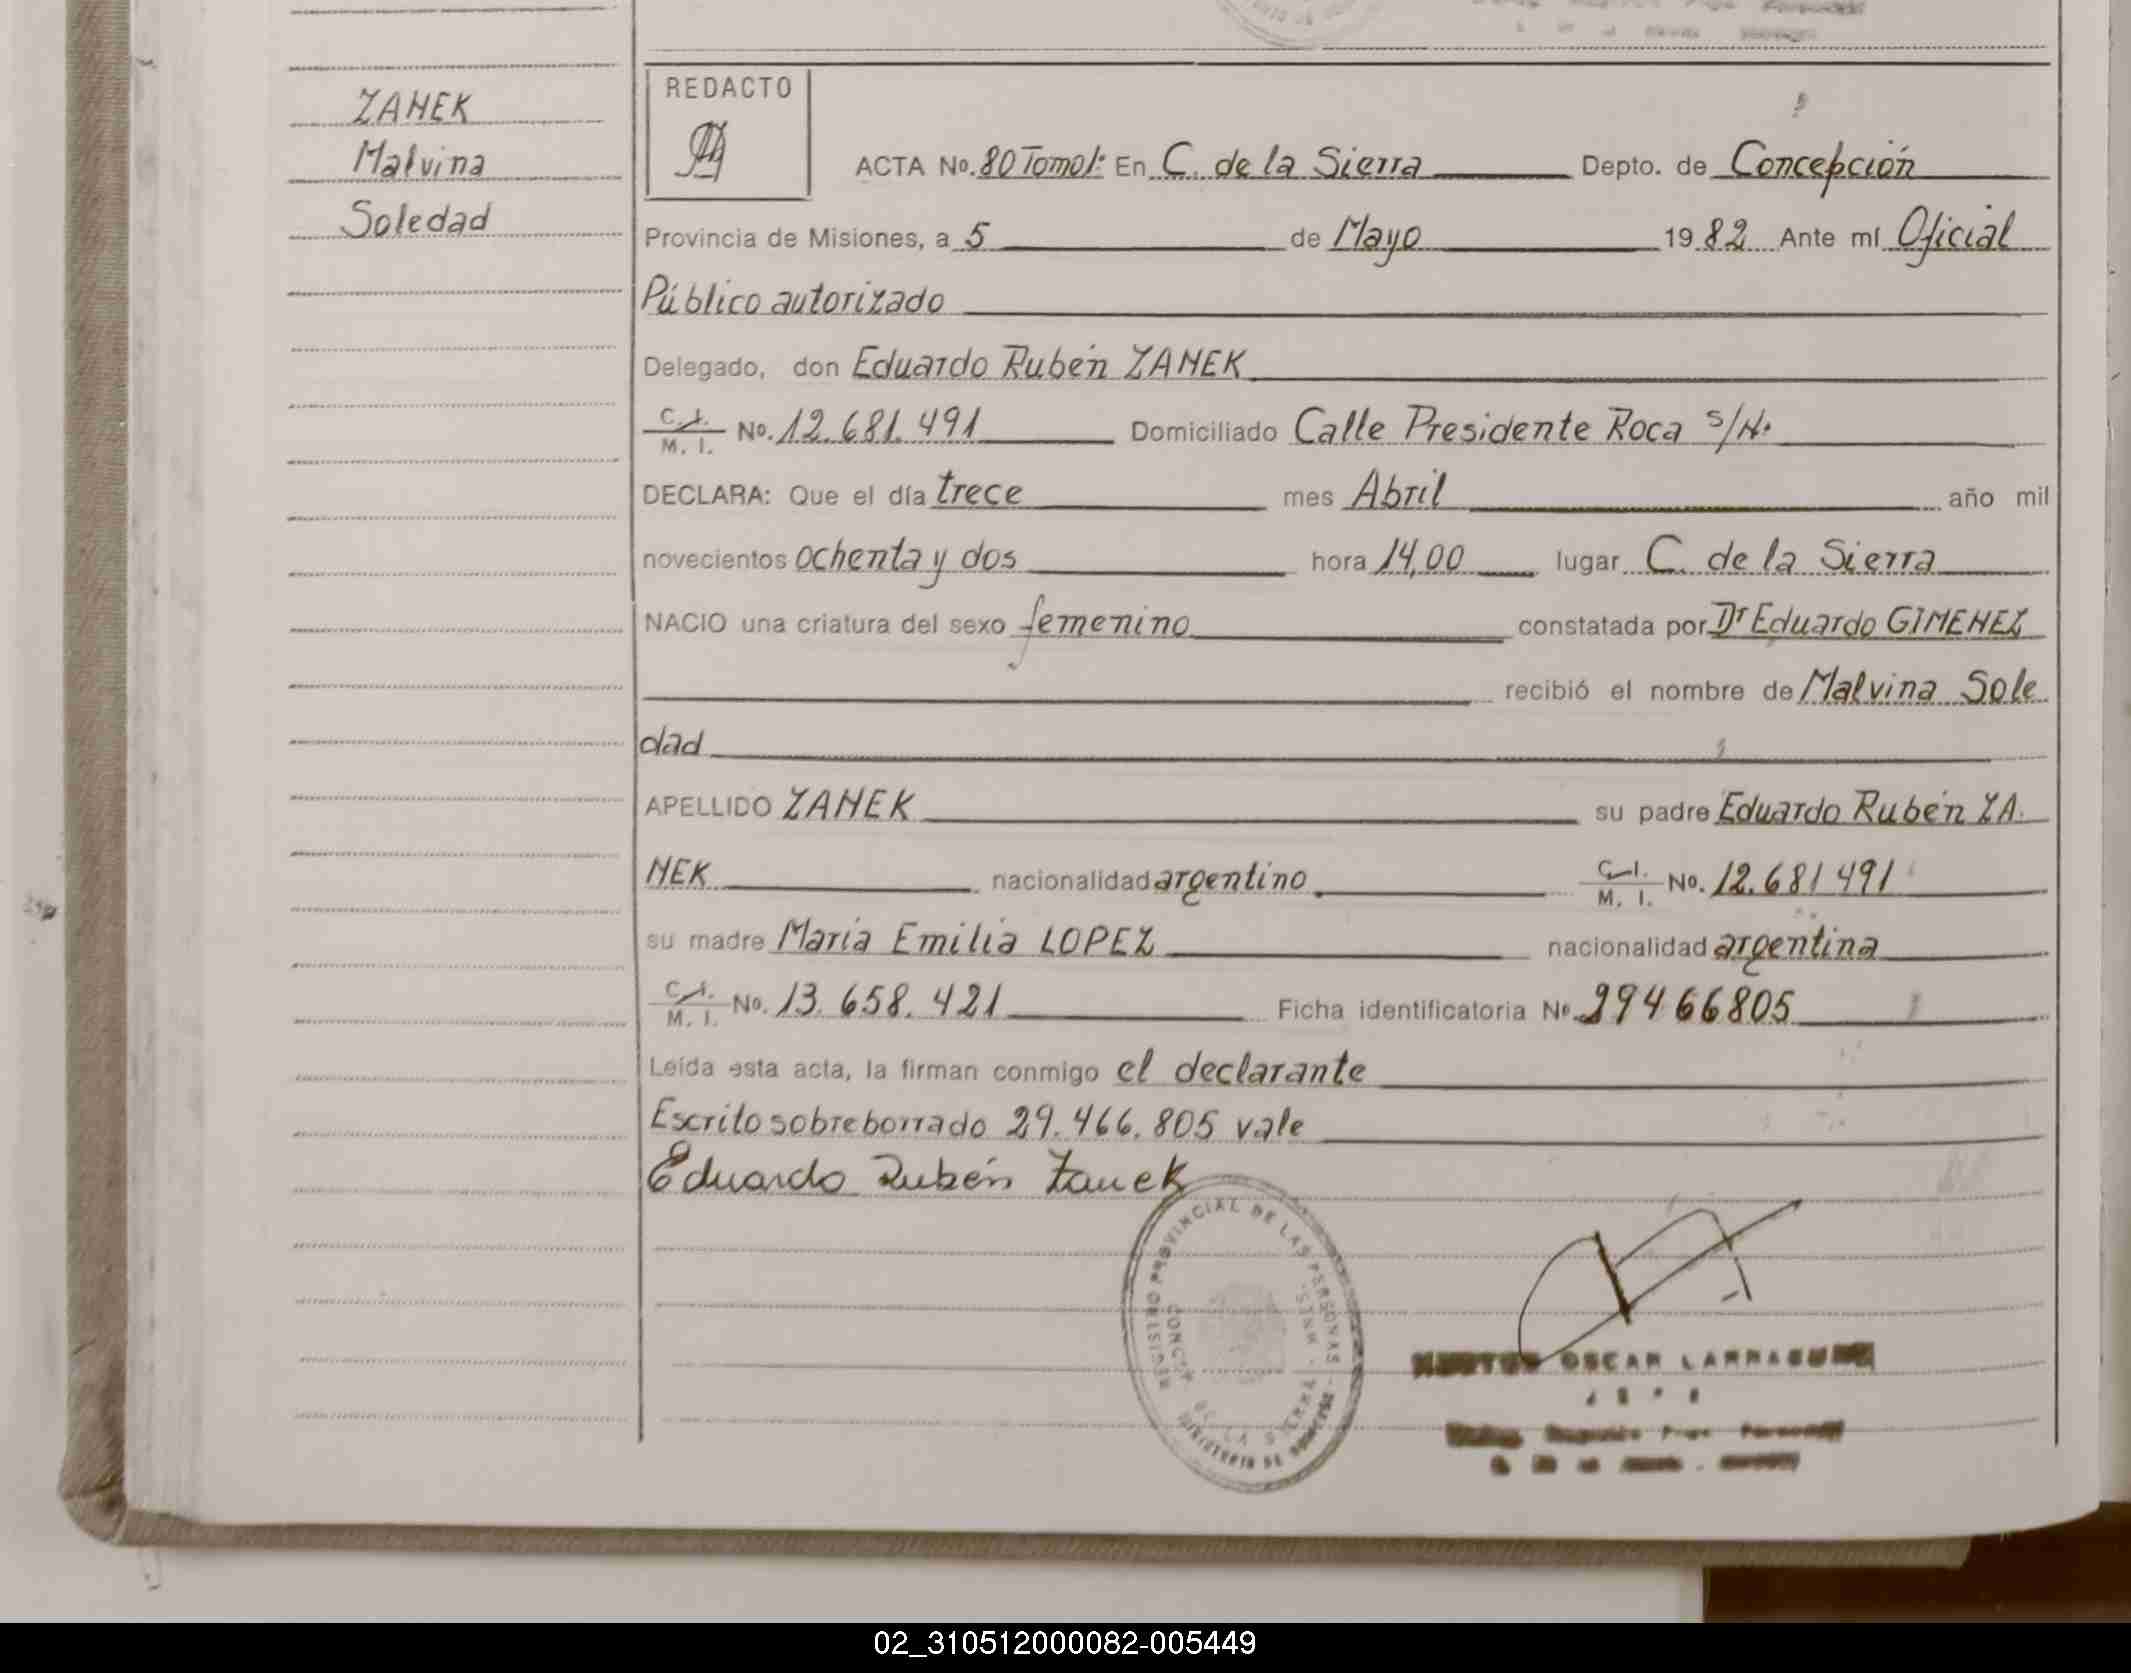 ZANEK
Malvina
Soledad
REDACTO
ACTA No. 80 Tomo 1: En C. de la Sierra Depto. de Concepción
Provincia de Misiones, a 5 de Mayo 1982 Ante mí Oficial
Público autorizado
Delegado, don Eduardo Rubén ZANEK
C. I. M. I. No. 12.681.491 Domiciliado Calle Presidente Roca s/N.
DECLARA: Que el día trece mes Abril año mil
novecientos ochenta y dos hora 14,00 lugar C. de la Sierra
NACIO una criatura del sexo femenino constatada por Dr Eduardo GIMENEZ
recibió el nombre de Malvina Sole
dad
APELLIDO ZANEK su padre Eduardo Rubén ZA.
NEK nacionalidad argentino C. I. M. I. No. 12.681 491
su madre María Emilia LOPEZ nacionalidad argentina
C. I. M. I. No. 13.658.421 Ficha identificatoria Nº 29466805
Leída esta acta, la firman conmigo el declarante
Escrito sobreborrado 29.466.805 vale
Eduardo Rubén Zanek
REGISTRO PROVINCIAL DE LAS PERSONAS
CONCEP. DE LA SIERRA
MINISTERIO DE GOBIERNO
OSCAR
02_310512000082-005449